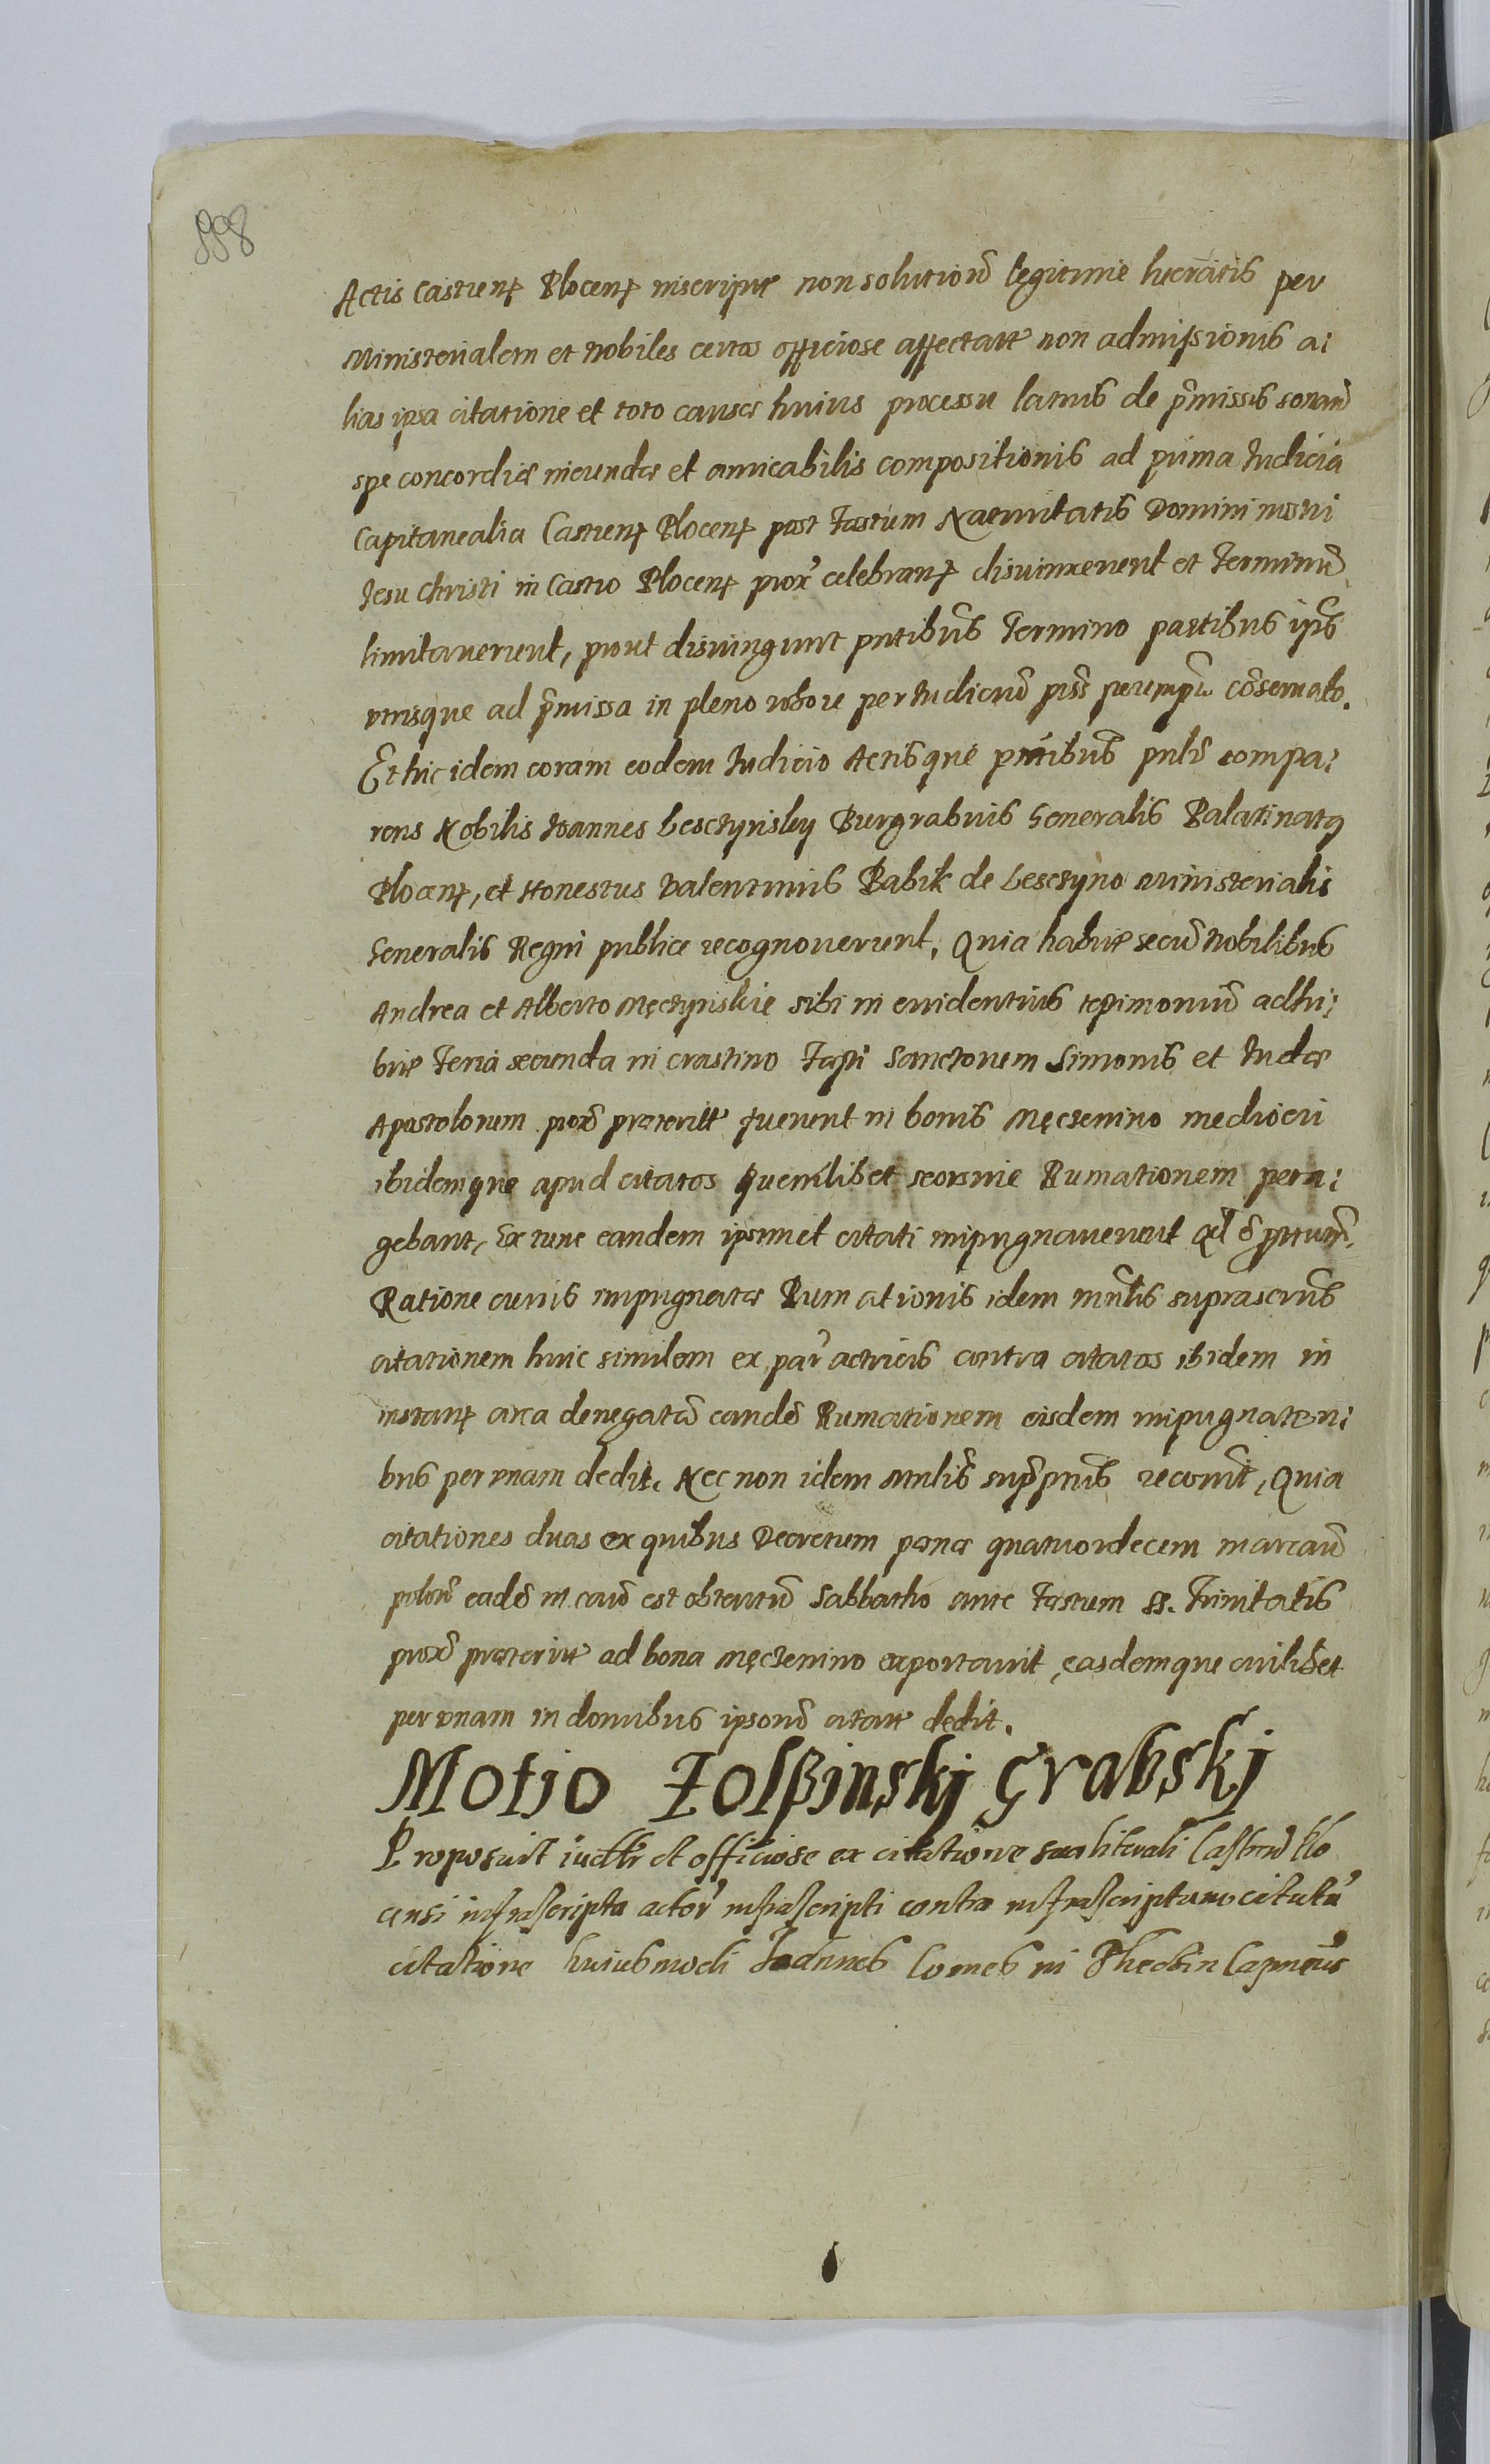 998
Actis Castreñ Ploceñ inscriptæ non solutionũ legitimè lucratis per
Ministerialem et Nobiles certos officiose affectatæ non admissionis a:
lias ipsa citatione et toto causæ huius processu latius de p̃missis sonanõ
spe concordiæ ineundæ et amicabilis compositionis ad prima Iudicia
Capitanealia Castreñ Ploceñ post Festum Natiuitatis Domini nostri
Iesu Christi in Castro Ploceñ prox̃ celebrañ disiunxerunt et Terminũ
limitauerunt, prout disiungunt pñtibus Termino partibus ip̃is
vtrisque ad p̃missa in pleno robore per Iudiciũ pñs peremp̃ cõseruato.
Et hic idem coram eodem Iudicio Actisque pñtibus psñlr compa:
rens Nobilis Ioannes Lesczynsky Burgrabius Generalis Palatinatus
Ploceñ, et Honestus Valentinus Babik de Lesczyno Ministerialis
Generalis Regni publice recognouerunt, Quia habitis secũ Nobilibus
Andrea et Alberto Męczynskie sibi in euidentius testimoniũ adhi:
bitis Feria secunda in crastino Festi Sanctorum Simonis et Iudæ
Apostolorum prox̃ præteritæ fuerunt in bonis Męczenino mediocri
ibidemque apud citatos quemlibet seorsiue Rumationem pera:
gebant, Ex tunc eandem ipsimet citati impugnauerunt
Ratione cuius impugnatæ Rumationis idem mñlis suprascrũs
citationem huic similem ex par̃ actricis contra citatos ibidem in
instañ circa denegatã eandẽ Rumationem eisdem impugnaten:
bus per vnam dedit. Nec non idem Mñlis recouit, Quia
citationes duas ex quibus Decretum pœnæ quatuordecem marcarũ
polon̄ eadẽ in cauõ est obtentũ Sabbatho ante Festum SS. Trinitatis
prox̃ præteritæ ad bona Męczenino exportauit, easdemque cuilibet
per vnam in domibus ipsorũ citatæ dedit.
Motio Zolßinskj Grabskj
Proposuit iudtr et officiose ex citatione sua literali Castreñ Plo
censi infrascripta actor̃ infrascripti contra infrascriptum citatũ
citatione huiusmodi Ioannes Comes in